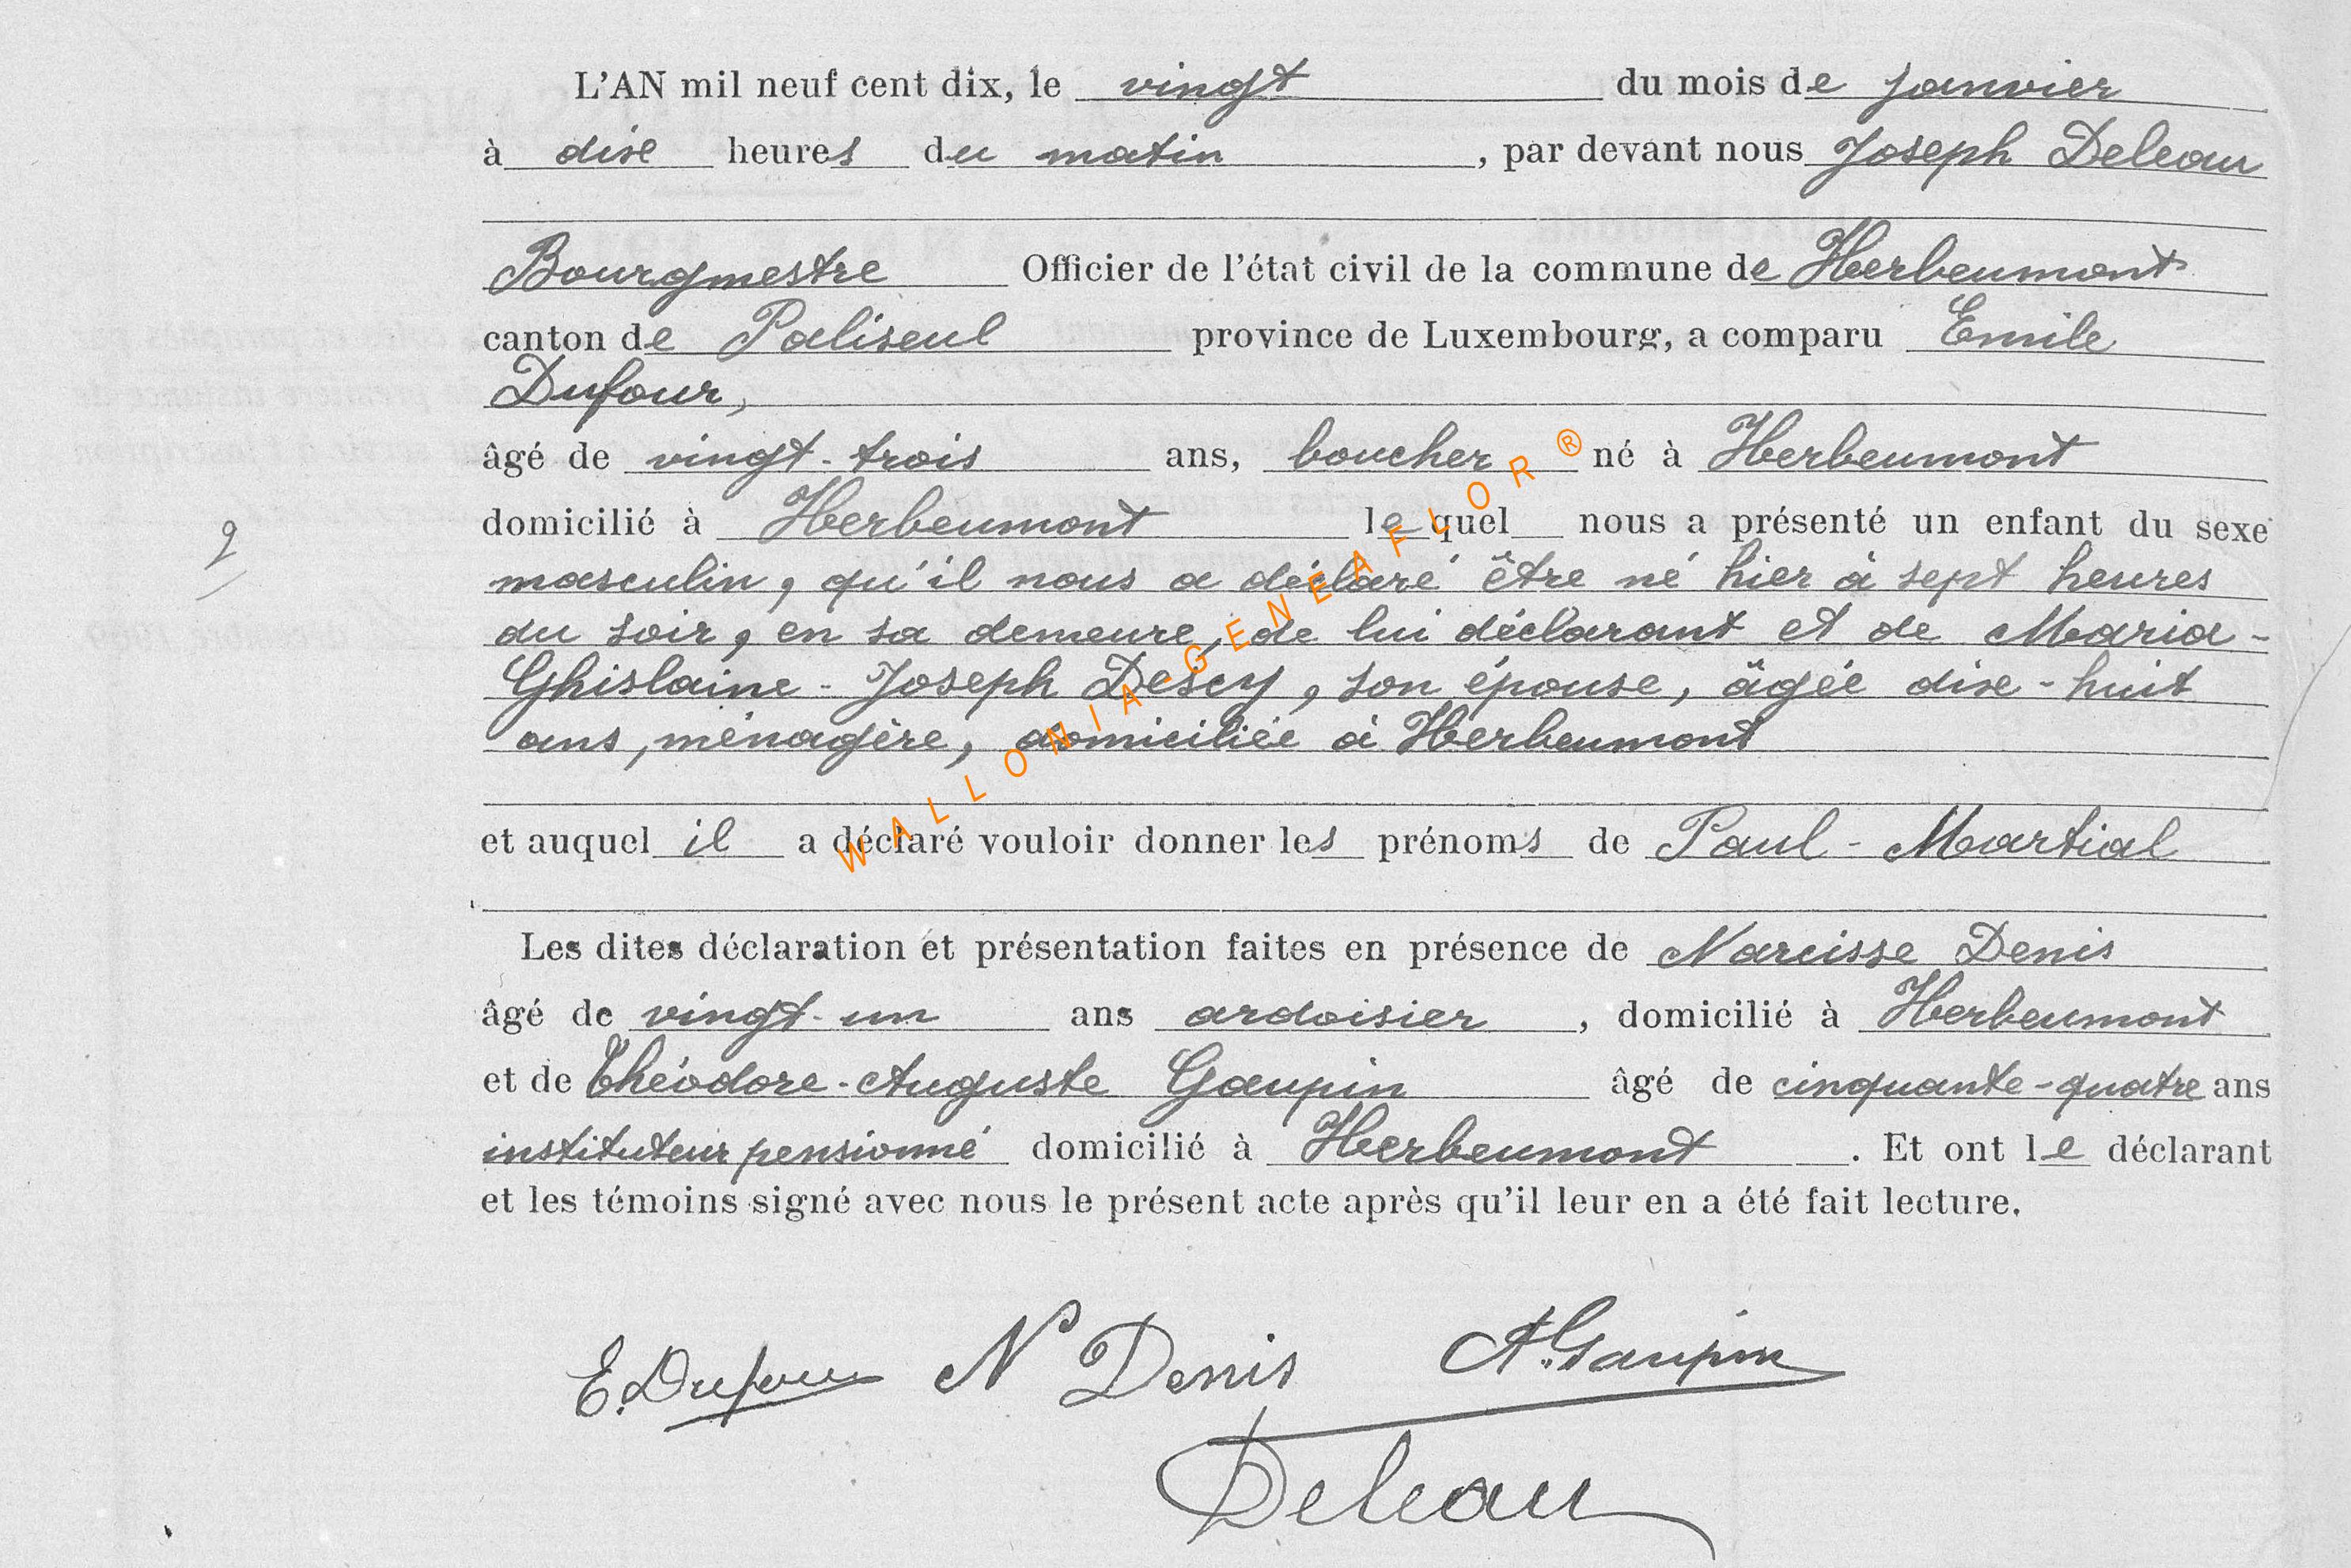 L'AN mil neuf cent dix, le vingt du mois de janvier
à dix heures du matin, par devant nous Joseph Deleau
Bourgmestre Officier de l'état civil de la commune de Herbeumont
canton de Paliseul province de Luxembourg, a comparu Emile
Dufour,
âgé de vingt-trois ans, boucher né à Herbeumont
domicilié à Herbeumont lequel nous a présenté un enfant du sexe
masculin, qu'il nous a déclaré être né hier à sept heures
du soir, en sa demeure, de lui déclarant et de Maria-
Ghislaine-Joseph Descy, son épouse, âgée dix-huit
ans, ménagère, domiciliée à Herbeumont
et auquel il a déclaré vouloir donner les prénoms de Paul-Martial
Les dites déclaration et présentation faites en présence de Narcisse Denis
âgé de vingt-un ans ardoisier, domicilié à Herbeumont
et de Théodore-Auguste Gaupin âgé de cinquante-quatre ans
instituteur pensionné domicilié à Herbeumont. Et ont le déclarant
et les témoins signé avec nous le présent acte après qu'il leur en a été fait lecture.
E. Dufour N Denis A. Gaupin
Deleau
WALLONIA-GENEAFLOR®